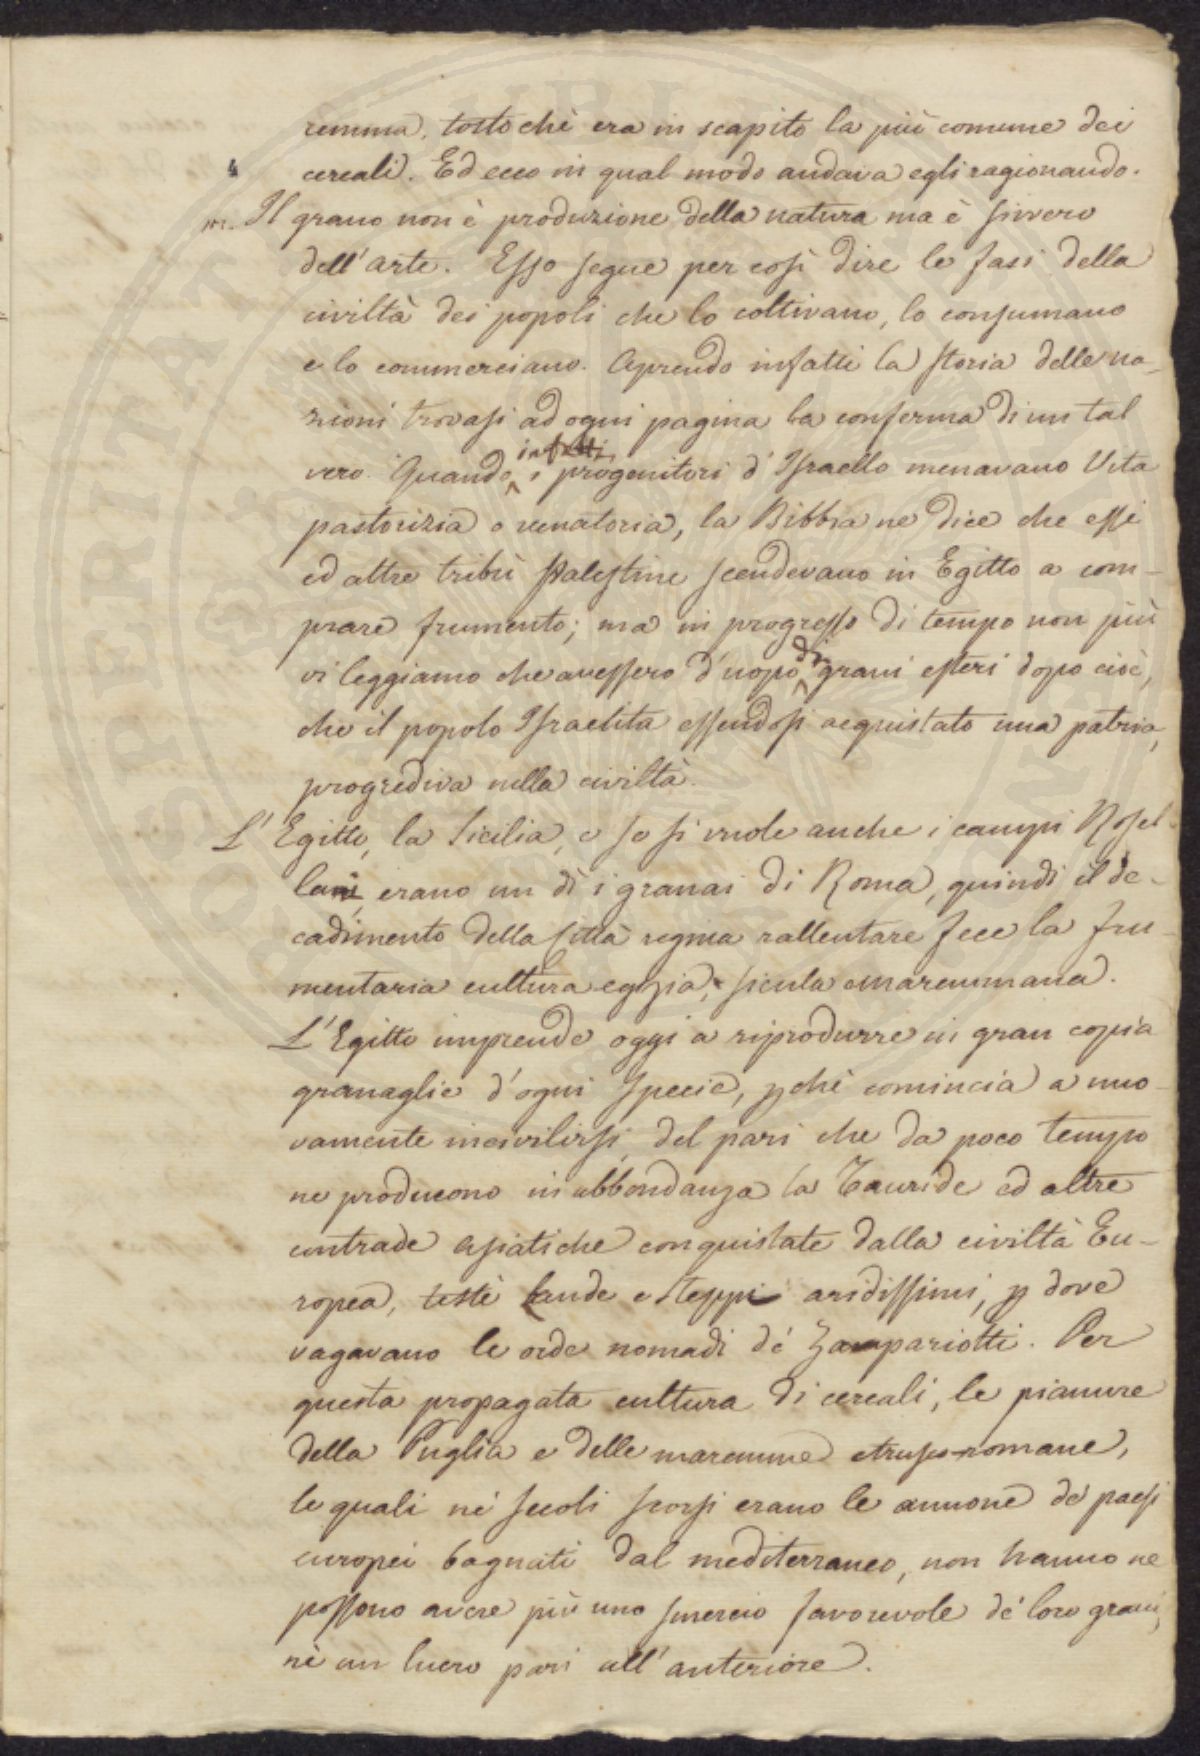 remma, tosto chè era in scapito la più comune dei
cereali. Ed ecco in qual modo andava egli ragionando.
Il grano non è produzione della natura ma è sivvero
dell'arte. Esso segue per così dire le fasi della
civiltà dei popoli che lo coltivano, lo consumano
e lo commerciano. Aprendo infatti la storia delle na-
zioni trovasi ad ogni pagina la conferma di un tal
infatti
vero. Quando i progenitori d'Israello menavano Vita
pastorizia o venatoria, la Bibbia ne dice che essi
ed altre tribù Palestine scendevano in Egitto a com-
prare frumento; ma in progresso di tempo non più
vi leggiamo che avessero d'uopo di grani esteri dopo cioè,
che il popolo Israelita essendosi acquistato una patria,
progrediva nella civiltà.
L'Egitto, la Sicilia, e se si vuole anche i campi Rosel-
lani, erano un dì i granai di Roma, quindi il de-
cadimento della Città regina rallentare fece la fru-
mentaria cultura egizia, sicula e maremmana.
L'Egitto imprende oggi a riprodurre in gran copia
granaglie d'ogni specie, pchè comincia a nuo-
vamente incivilirsi, del pari che da poco tempo
ne producono in abbondanza la Tauride ed altre
contrade Asiatiche conquistate dalla civiltà Eu-
ropea, testè lande e steppi aridissimi, p dove
vagavano le orde nomadi de' Zampariotti. Per
questa propagata cultura di cereali, le pianure
della Puglia e delle maremme etrusco-romane,
le quali nè secoli scorsi erano le annone de' paesi
europei bagnati dal mediterraneo, non hanno ne
possono avere più uno smercio favorevole de' loro grani,
nè un lucro pari all'anteriore.